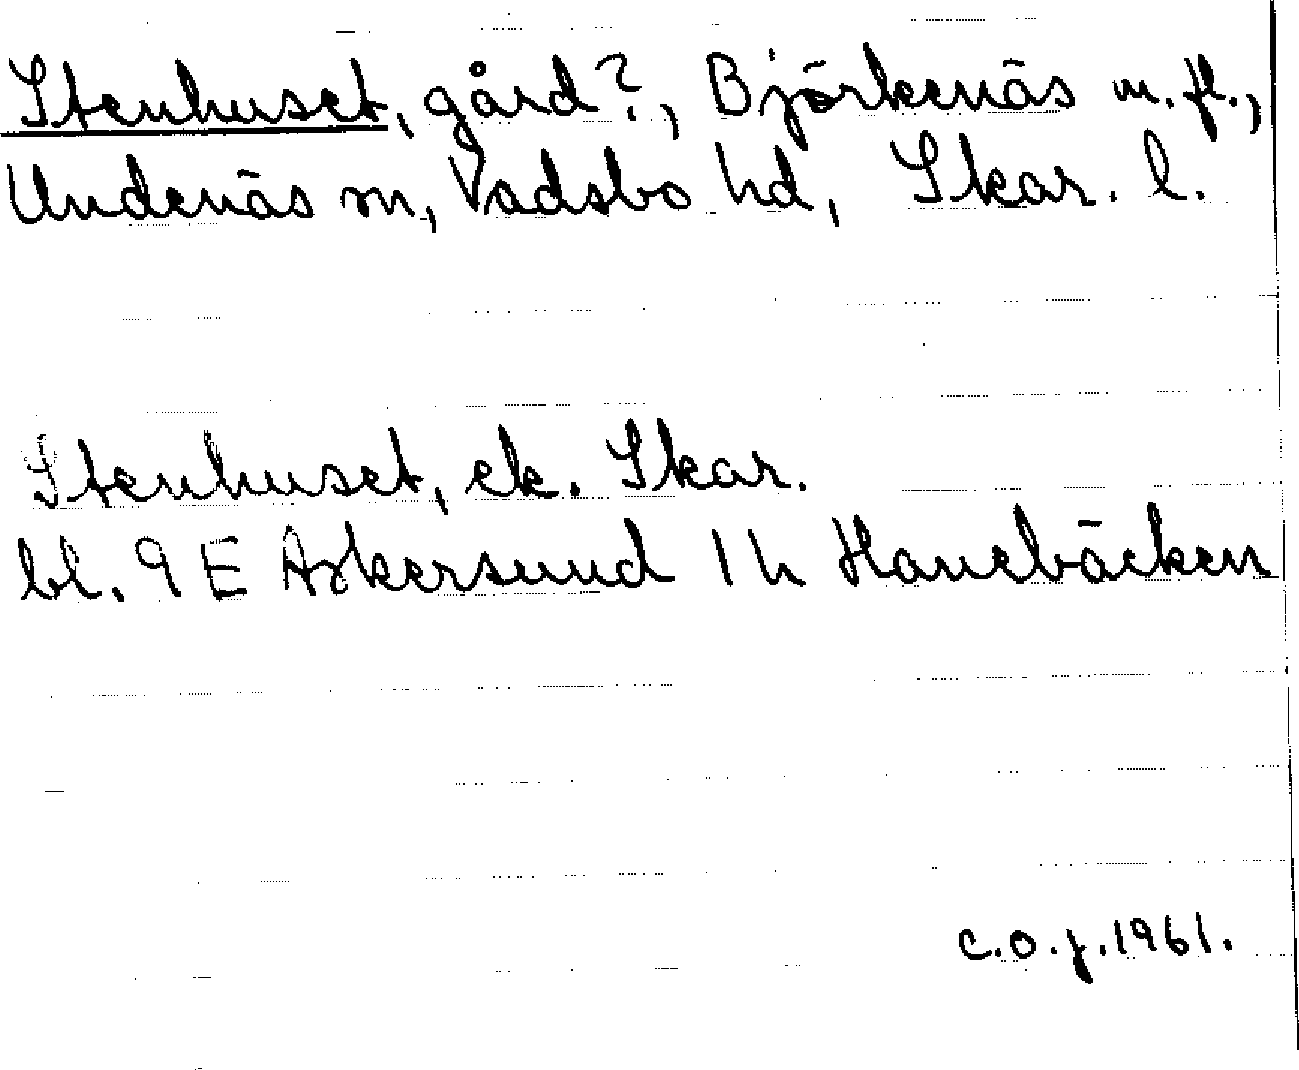 Stenhuset, gård?, Björkenäs m. fl.,
Undenäs sn, Vadsbo hd, Skar. l.
Stenhuset, ek. Skar.
bl. 9 E Askersund 1 h Hanebäcken
C.O.J. 1961.